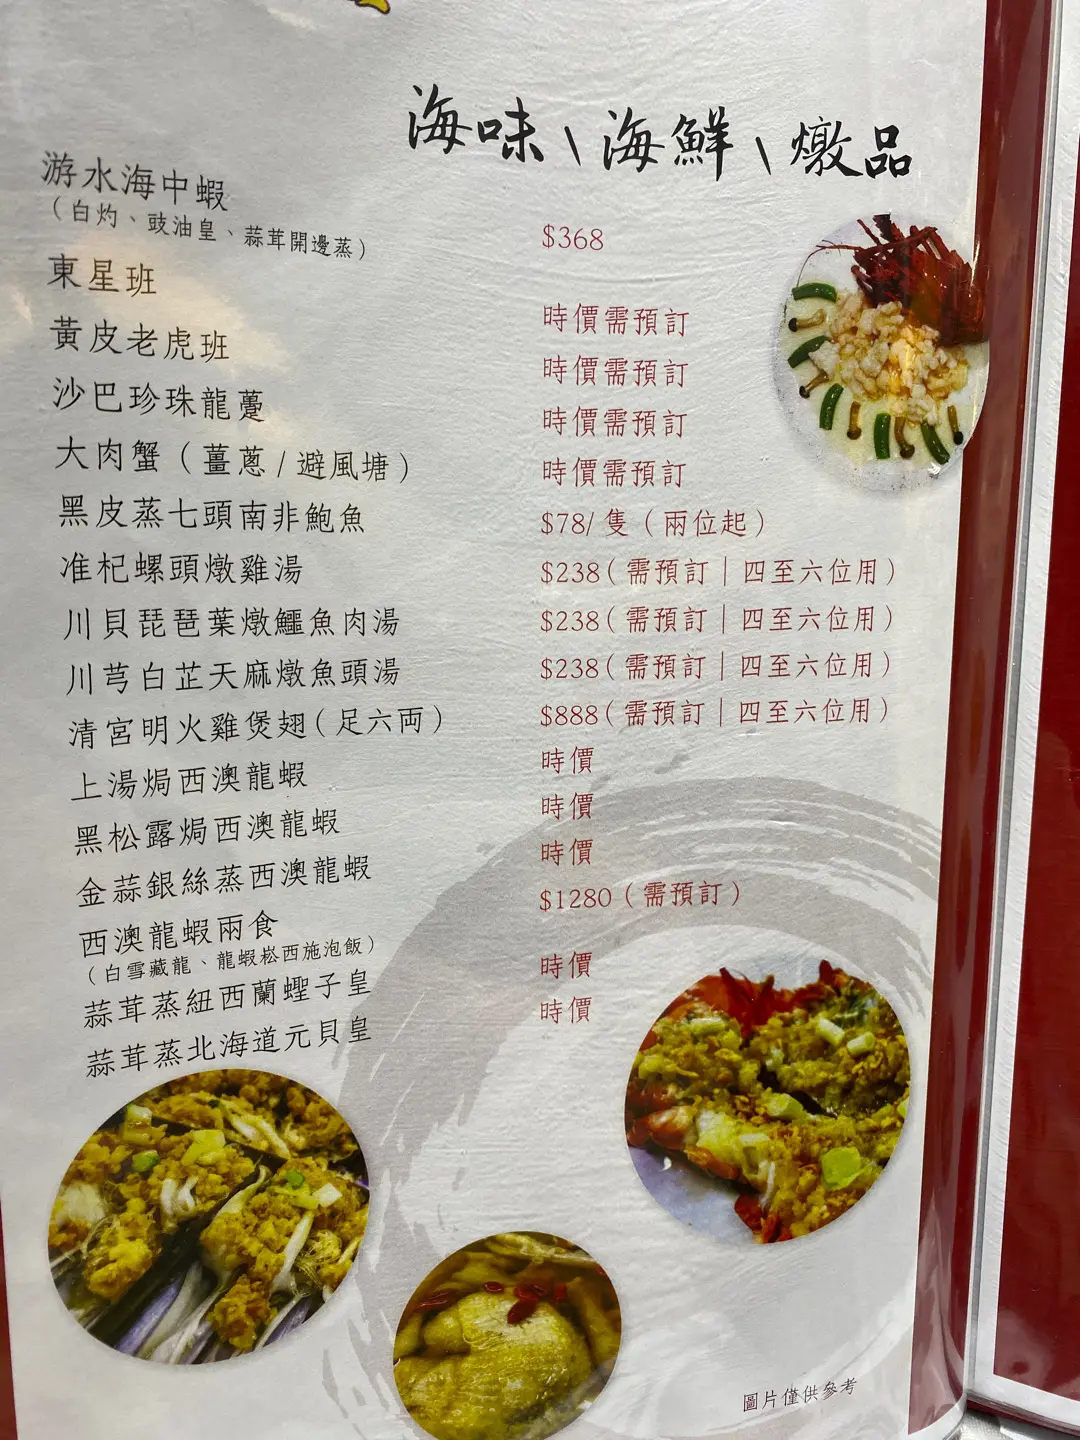 海味、海鮮、燉品
游水海中蝦 $368
（白灼、豉油皇、蒜茸開邊蒸）
東星班 時價需預訂
黃皮老虎班 時價需預訂
沙巴珍珠龍躉 時價需預訂
大肉蟹（薑蔥/避風塘） 時價需預訂
黑皮蒸七頭南非鮑魚 $78/隻（兩位起）
准杞螺頭燉雞湯 $238(需預訂｜四至六位用）
川貝琵琶葉燉鱷魚肉湯 $238(需預訂｜四至六位用）
川芎白芷天麻燉魚頭湯 $238(需預訂｜四至六位用）
清宮明火雞煲翅(足六両） $888(需預訂｜四至六位用）
上湯焗西澳龍蝦 時價
黑松露焗西澳龍蝦 時價
金蒜銀絲蒸西澳龍蝦 時價
西澳龍蝦兩食 $1280（需預訂）
（白雪藏龍、龍蝦崧西施泡飯）
蒜茸蒸紐西蘭蟶子皇 時價
蒜茸蒸北海道元貝皇 時價
圖片僅供參考